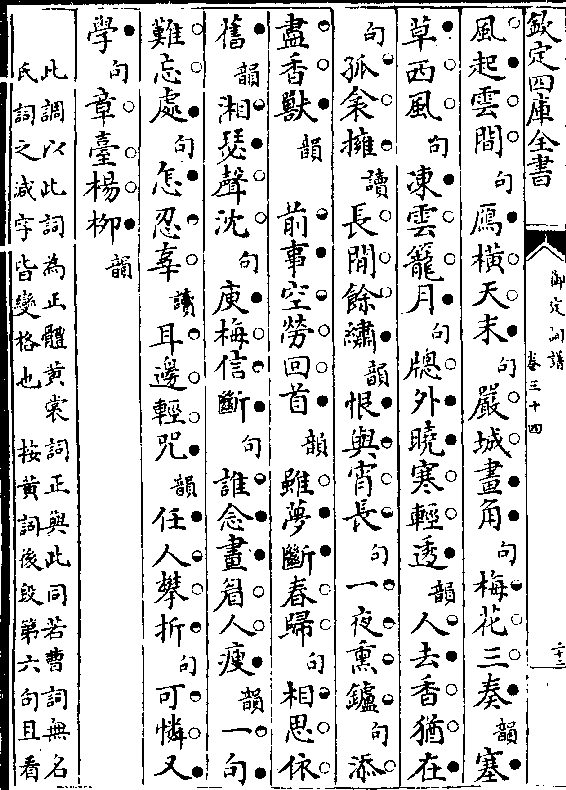 欽定四庫全書
御定詞譜
卷三十四
風起雲間句鴈橫天末句嚴城畫角句梅花三奏韻塞
草西風句凍雲籠月句牕外曉寒輕透韻人去香猶在
句孤衾擁讀長閒餘繡韻恨與宵長句一夜熏鑪句添
盡香獸韻　前事空勞回首韻雖夢斷春歸句相思依
舊韻湘瑟聲沈句庾梅信斷句誰念畫眉人瘦韻一句
難忘處句怎忍辜讀耳邊輕咒韻任人攀折句可憐又
學句章臺楊柳韻
此調以此詞為正體黃裳詞正與此同若曹詞無名
氏詞之減字皆變格也　按黃詞後段第六句且看